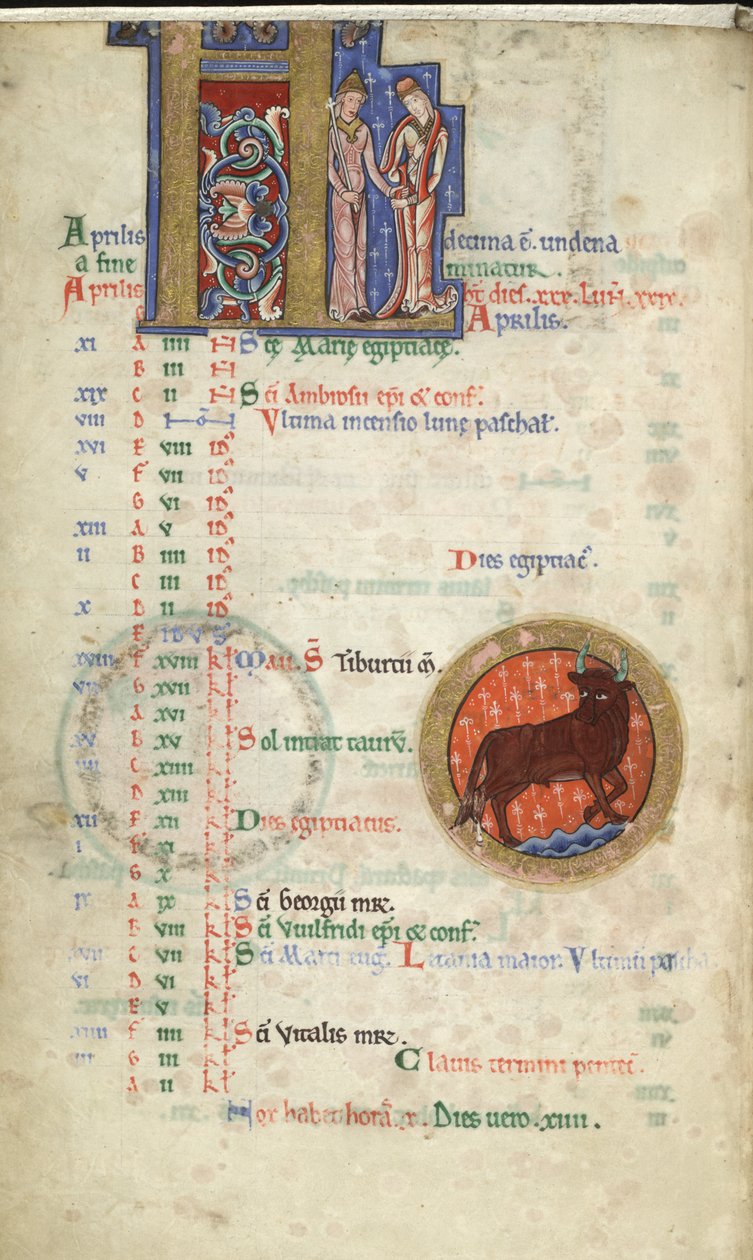 Aprilis decima ē. undena
a fine minatur.
Aprilis ht dies. xxx. Luñ. xxix.
Aprilis.
xi A iiii N Sce Marie egiptiace.
B iii N
xix C ii N Sci Ambrosii epi & conf.
viii D Nō Vltima incensio lune paschał.
xvi E viii id9
v F vii id9
G vi id9
xiii A v id9
ii B iiii id9 Dies egiptiac9.
C iii id9
x D ii id9
E idvs
xviii F xviii kł Maii. S̄ Tiburtii m̄.
vii G xvii kł
A xvi kł
xv B xv kł Sol intrat taurv̄.
iiii C xiiii kł
D xiii kł
xii E xii kł Dies egiptiatus.
i F xi kł
G x kł
ix A ix kł Sci Georgii mr.
B viii kł Sci Vuilfridi epi & conf.
xvii C vii kł Sci Marci eug. Letania maior. Vltimū pascha
vi D vi kł
E v kł
xiiii F iiii kł Sci Vitalis mr.
iii G iii kł Clauis termini pentec̄.
A ii kł
Nox habet horā. x. Dies uero. xiiii.